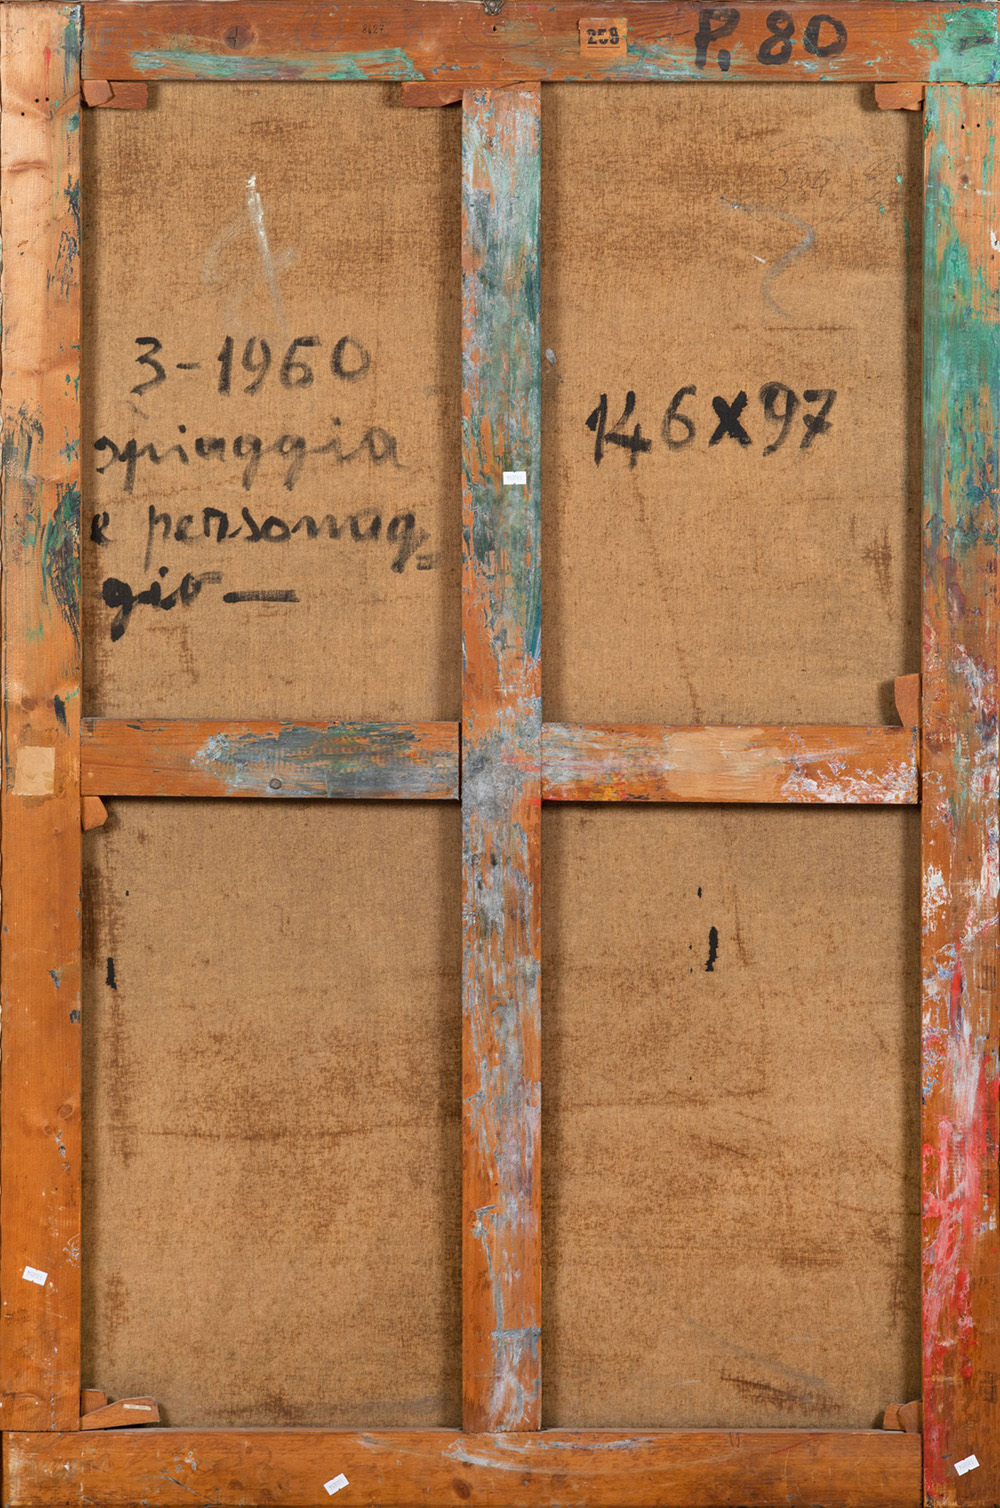 8427
259
P. 80
3-1960
spiaggia
e personag-
gio —
146x97